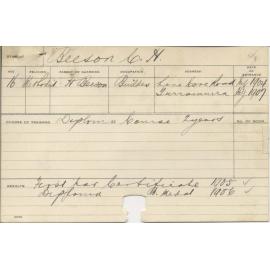 Beeson C. H.
AGE RELIGION PARENT OR GUARDIAN OCCUPATION ADDRESS DATE OF ENTRANCE
16 Methodist H Beeson Builder Lane Cove Road 1904
Turramurra 1907
COURSE OF TRAINING Diploma Course 2 years
RESULTS First year Certificate 1905
Diploma Medal 1906